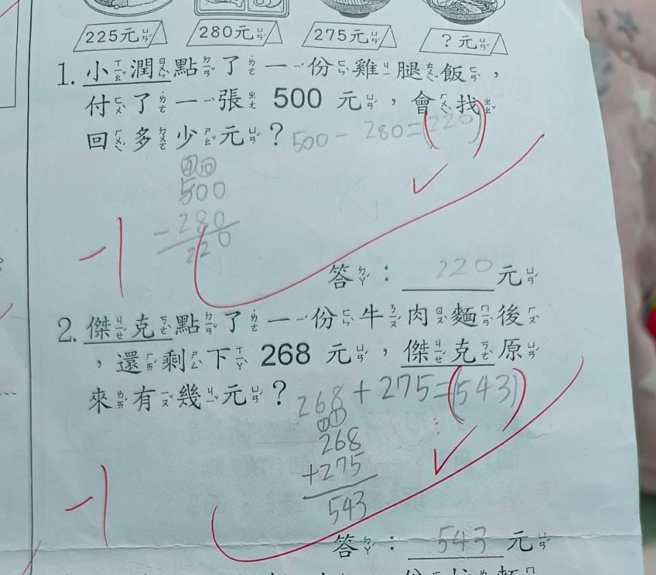 225元 280元 275元 ?元
1. 小潤點了一份雞腿飯，
付了一張 500 元，會找
回多少元？ 500-280=(220)
500
-280
220
-1
答：220元
2. 傑克點了一份牛肉麵後
，還剩下 268 元，傑克原
來有幾元？ 268+275=(543)
268
+275
543
-1
答：543元